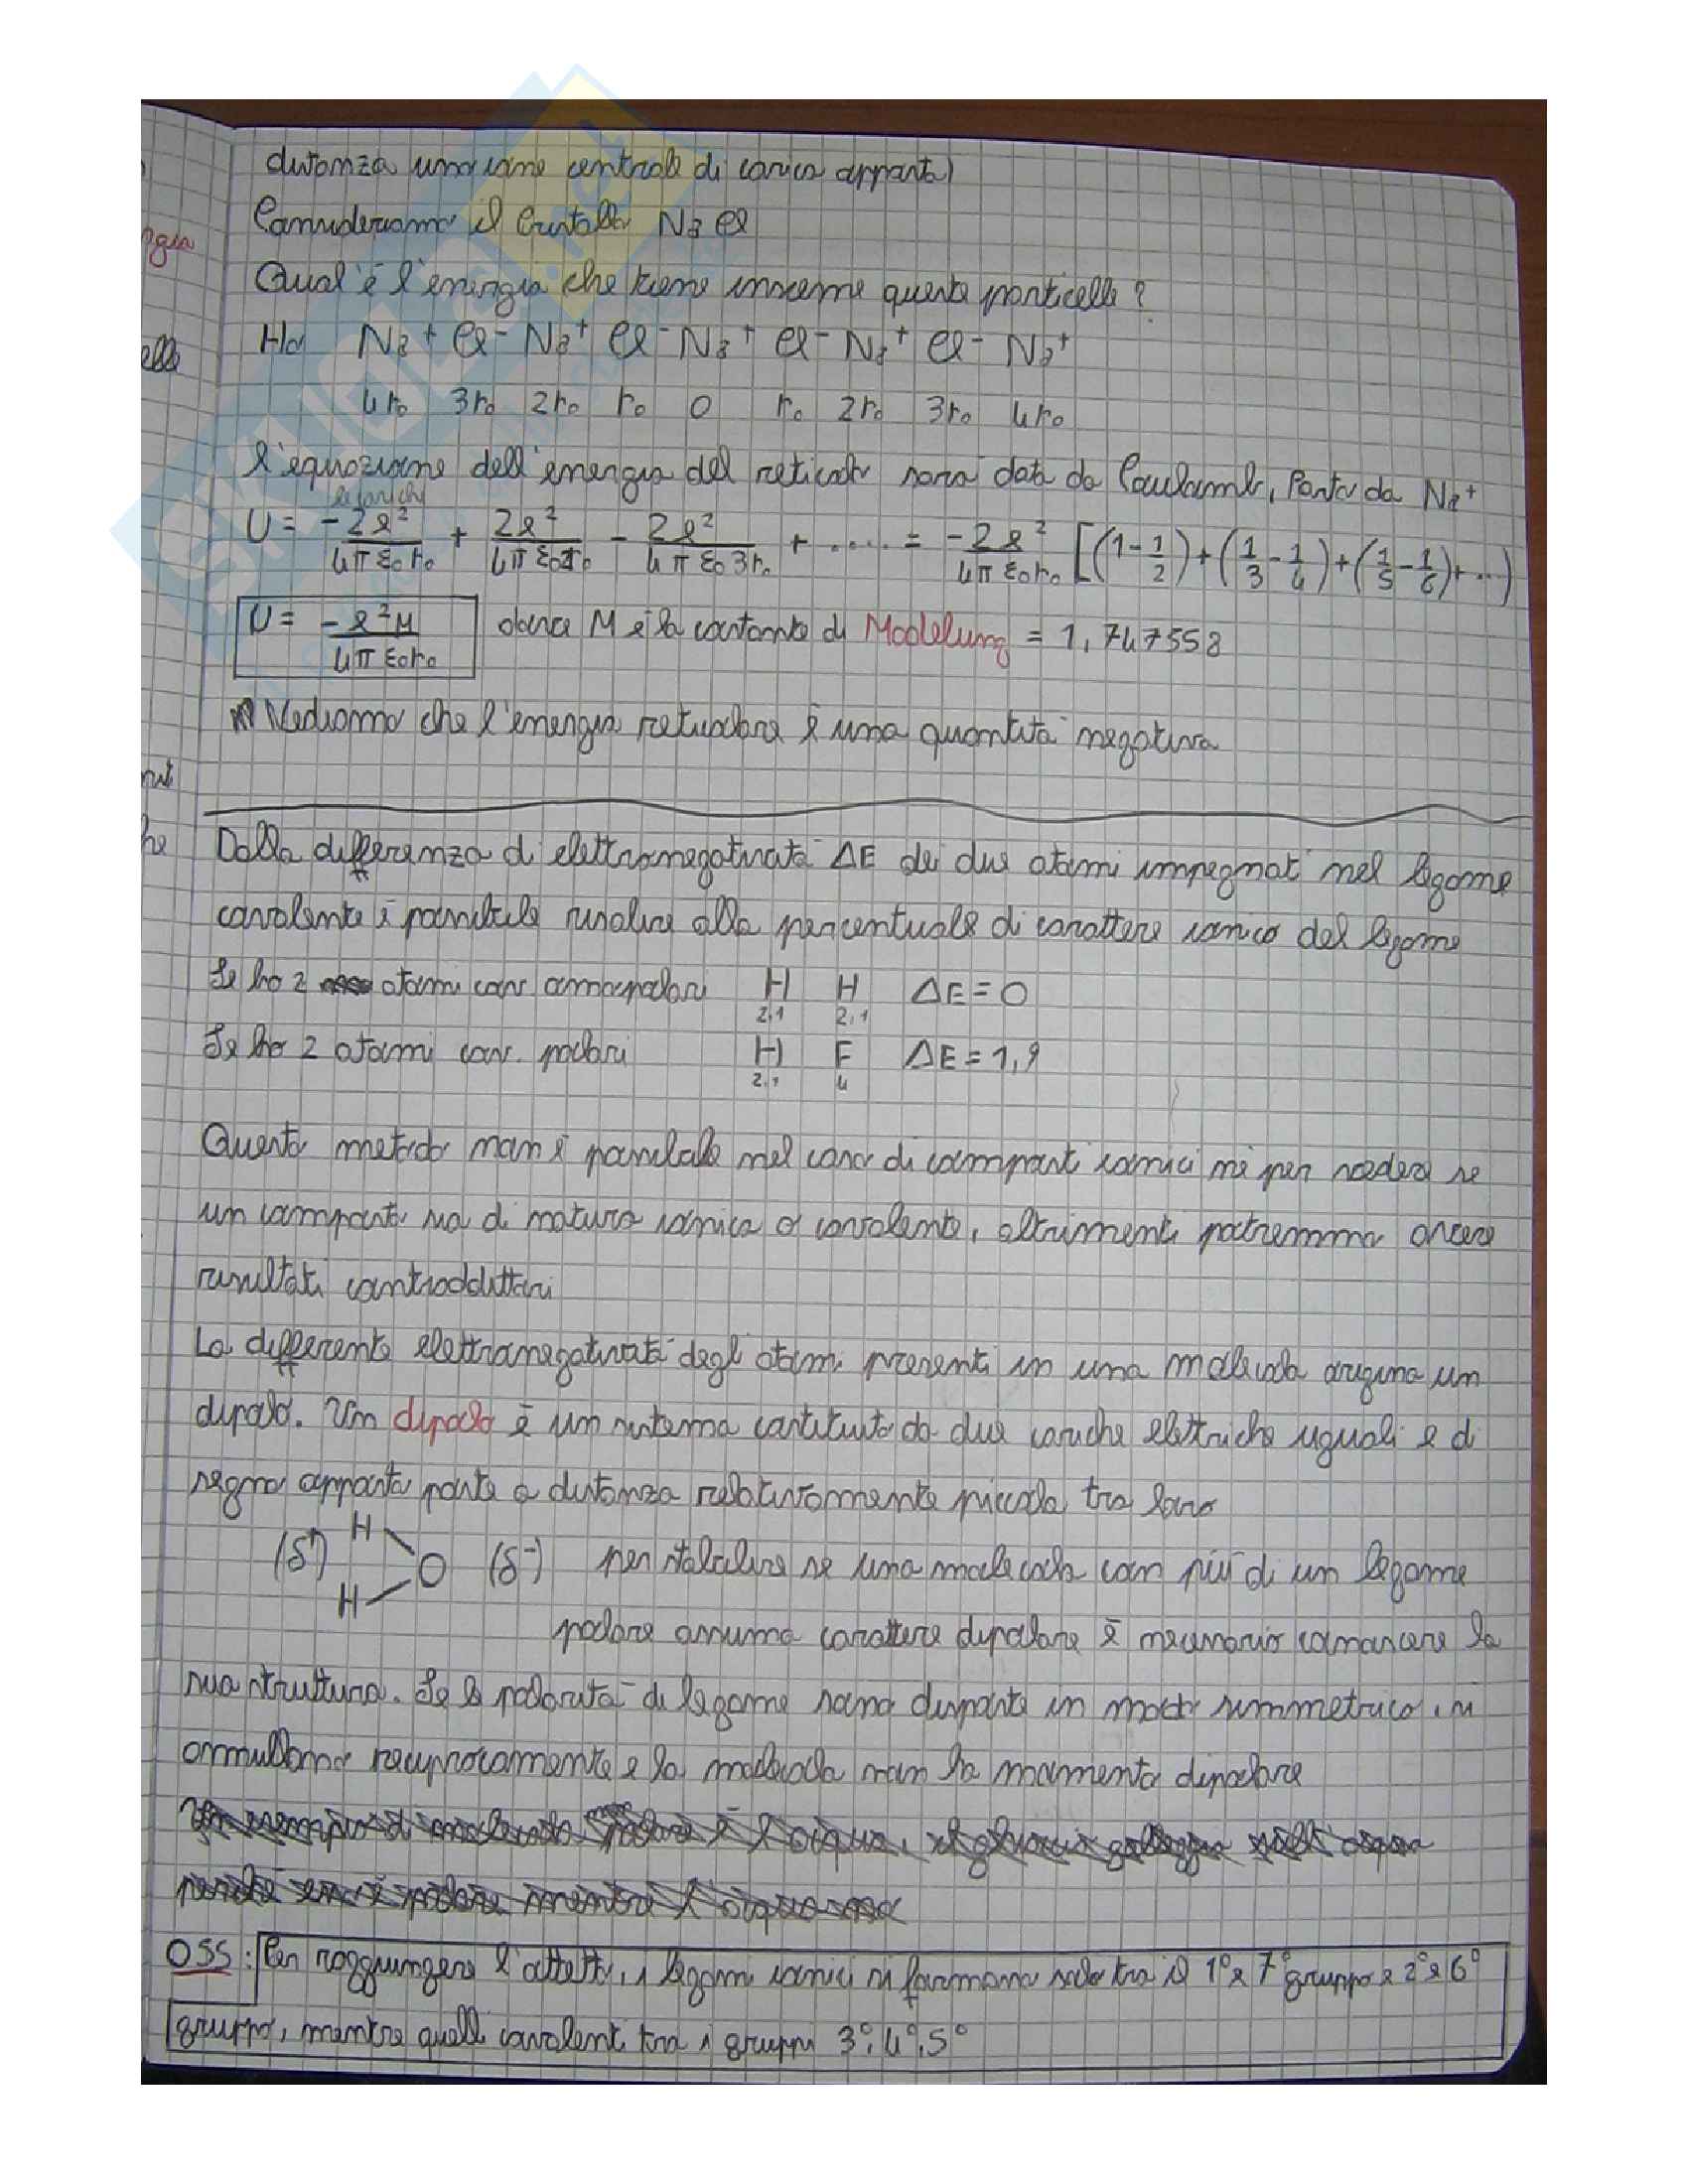 distanza uno ione centrale di carica opposta)
Consideriamo il Cristallo NaCl
Qual'è l'energia che tiene insieme queste particelle?
Ho Na+ Cl- Na+ Cl- Na+ Cl- Na+ Cl- Na+
4r₀ 3r₀ 2r₀ r₀ 0 r₀ 2r₀ 3r₀ 4r₀
L'equazione dell'energia del reticolo sarà data da Coulomb, Parto da Na+
le cariche
U = -2e²/4πε₀r₀ + 2e²/4πε₀2r₀ - 2e²/4πε₀3r₀ + ..... = -2e²/4πε₀r₀ [(1-1/2)+(1/3-1/4)+(1/5-1/6)+...)
U = -e²M/4πε₀r₀ dove M è la costante di Madelung = 1,747558
Vediamo che l'energia reticolare è una quantità negativa
Dalla differenza di elettronegatività ΔE dei due atomi impegnati nel legame
covalente è possibile risalire alla percentuale di carattere ionico del legame
Se ho 2 atomi cov. omopolari H H ΔE = 0
2,1 2,1
Se ho 2 atomi cov. polari H F ΔE = 1,9
2,1 4
Questo metodo non è possibile nel caso di composti ionici nè per vedere se
un composto sia di natura ionica o covalente, altrimenti potremmo avere
risultati contraddittori
La differente elettronegatività degli atomi presenti in una molecola origina un
dipolo. Un dipolo è un sistema costituito da due cariche elettriche uguali e di
segno opposto poste a distanza relativamente piccola tra loro
(δ+) H H O (δ-) per stabilire se una molecola con più di un legame
polare assuma carattere dipolare è necessario conoscere la
sua struttura. Se le polarità di legame sono disposte in modo simmetrico, si
annullano reciprocamente e la molecola non ha momento dipolare
Un esempio di molecola non polare è l'acqua, il ghiaccio galleggia sull'acqua
perché esso è polare mentre l'acqua no
OSS: Per raggiungere l'ottetto, i legami ionici si formano solo tra il 1° e 7° gruppo e 2° e 6°
gruppo, mentre quelli covalenti tra i gruppi 3°, 4°, 5°